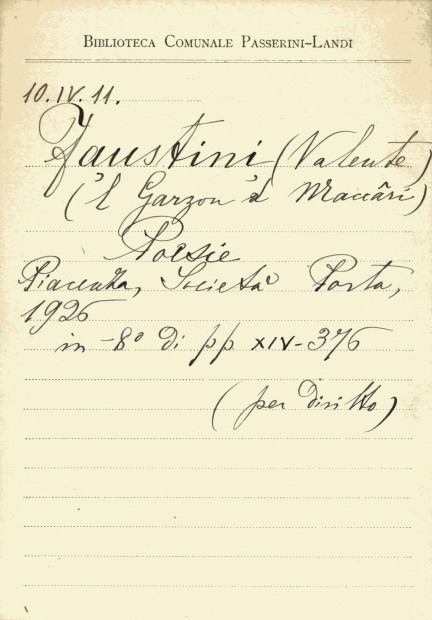 BIBLIOTECA COMUNALE PASSERINI-LANDI
10.IV.11.
Faustini (Valente)
('l Garzon 'd Maccâri)
Poesie
Piacenza, Società Porta,
1926
in-8° di pp. XIV-376
(per diritto)